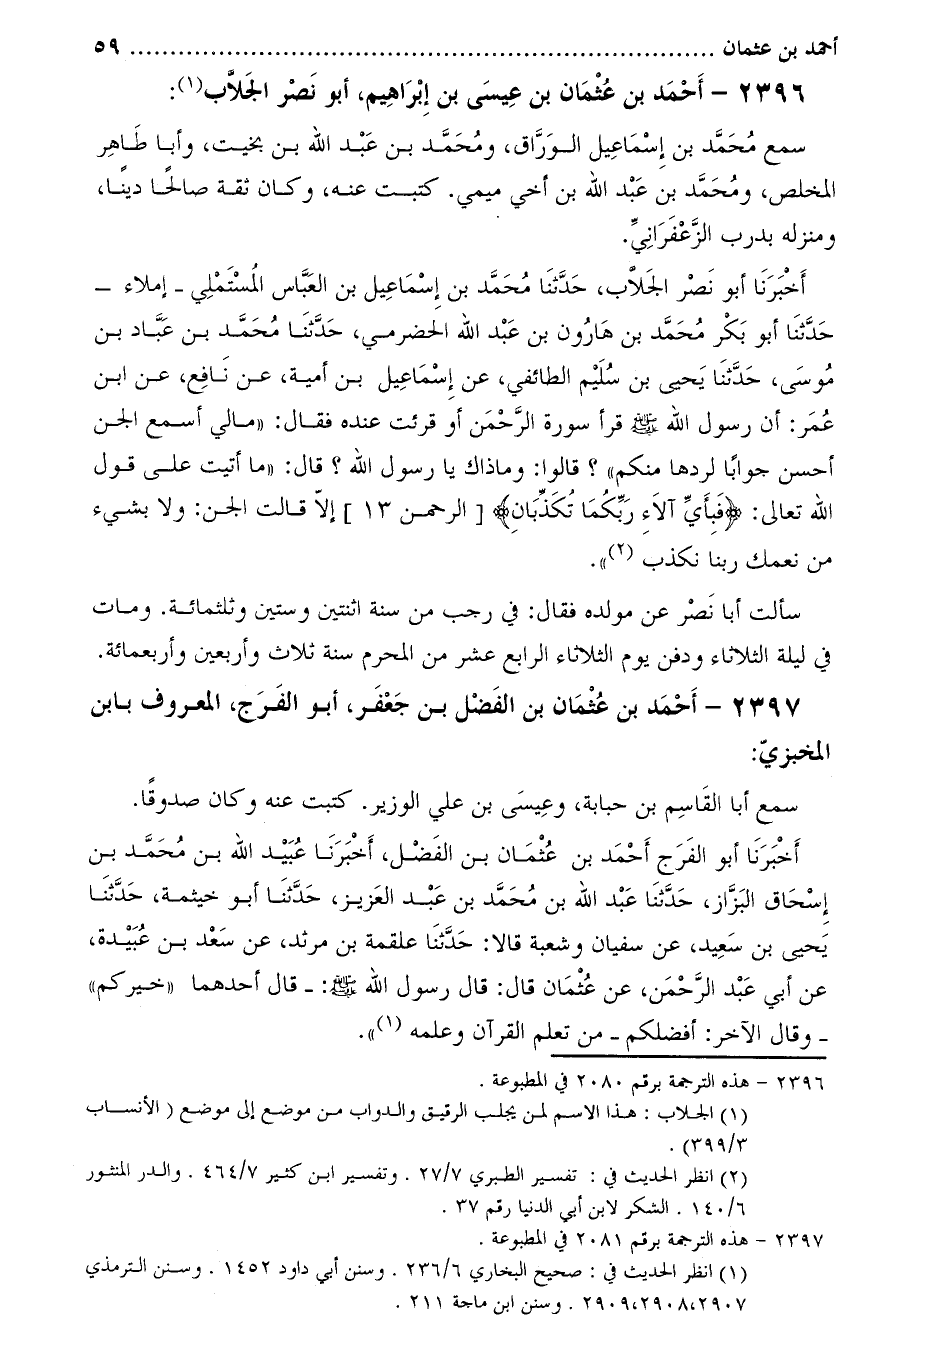 أحمد بن عثمان ........................................................................ ٥٩
٢٣٩٦ – أَحْمَد بن عُثْمَان بن عِيسَى بن إبْرَاهِيم، أبو نَصْر الجَلاَّب(١):
سمع مُحَمَّد بن إسْمَاعِيل الـوَرَّاق، ومُحَمَّـد بـن عَبْد الله بن بخيت، وأبـا طَاهِر
المخلص، ومُحَمَّد بن عَبْد الله بن أخي ميمي. كتبت عنه، وكان ثقة صالحًا دينًا،
ومنزله بدرب الزَّعْفَرَانِيِّ.
أَخْبَرَنَا أبو نَصْر الجَلاَّب، حَدَّثَنَا مُحَمَّد بن إسْمَاعِيل بن العَبَّاس المُسْتَمْلِي ـ إملاء ــ
حَدَّثَنَا أبو بَكْر مُحَمَّد بن هَارُون بن عَبْد الله الحضرمي، حَدَّثَنَـا مُحَمَّـد بـن عَبَّاد بـن
مُوسَى، حَدَّثَنَا يَحيى بن سُلَيْم الطائفي، عن إسْمَاعِيل بـن أمية، عـن نَـافِع، عـن ابـن
عُمَر: أن رسول الله ﷺ قرأ سورة الرَّحْمَن أو قرئت عنده فقـال: «مـالي أسـمع الجـن
أحسن جوابًا لردها منكم» ؟ قالوا: وماذاك يا رسول الله ؟ قال: «ما أتيت علـى قـول
الله تعالى: ﴿فَبِأَيِّ آلاَءِ رَبِّكُمَا تُكَذِّبَانِ﴾ [ الرحمـن ١٣ ] إلاّ قـالت الجـن: ولا بشيء
من نعمك ربنا نكذب (٢)».
سألت أبا نَصْر عن مولده فقال: في رجب من سنة اثنتين وستين وثلثمائـة. ومـات
في ليلة الثلاثاء ودفن يوم الثلاثاء الرابع عشر من المحرم سنة ثلاث وأربعين وأربعمائة.
٢٣٩٧ – أَحْمَد بن عُثْمَان بن الفَضْل بـن جَعْفَـر، أبـو الفَـرَج، المعـروف بـابن
المخبزيّ:
سمع أبا القَاسِم بن حبابة، وعِيسَى بن علي الوزير. كتبت عنه وكان صدوقًا.
أَخْبَرَنَا أبو الفَرَج أَحْمَد بن عُثْمَـان بـن الفَضْـل، أَخْبَرَنَـا عُبَيْـد الله بـن مُحَمَّـد بـن
إسْحَاق البَزَّاز، حَدَّثَنَا عَبْد الله بن مُحَمَّد بن عَبْـد العَزيـز، حَدَّثَنَـا أبـو خيثمـة، حَدَّثَنَـا
يَحيى بن سَعِيد، عن سفيان وشعبة قالا: حَدَّثَنَا علقمة بن مرثد، عن سَعْد بـن عُبَيْدة،
عن أبي عَبْد الرَّحْمَن، عن عُثْمَان قال: قال رسول الله ﷺ: ـ قال أحدهما «خيركم»
ـ وقال الآخر: أفضلكم ـ من تعلم القرآن وعلمه (١)».
٢٣٩٦ – هذه الترجمة برقم ٢٠٨٠ في المطبوعة .
(١) الجـلاب : هـذا الاسـم لمـن يجلب الرقيـق والـدواب مـن موضـع إلى موضـع ( الأنسـاب
٣٩٩/٣) .
(٢) انظر الحديث في : تفسير الطبري ٢٧/٧ . وتفسير ابن كثير ٤٦٤/٧ . والـدر المنثور
١٤٠/٦ . الشكر لابن أبي الدنيا رقم ٣٧ .
٢٣٩٧ – هذه الترجمة برقم ٢٠٨١ في المطبوعة .
(١) انظر الحديث في : صحيح البخاري ٢٣٦/٦ . وسنن أبي داود ١٤٥٢ . وسـنن الـترمذي
٢٩٠٧،٢٩٠٨،٢٩٠٩ . وسنن ابن ماجة ٢١١ .